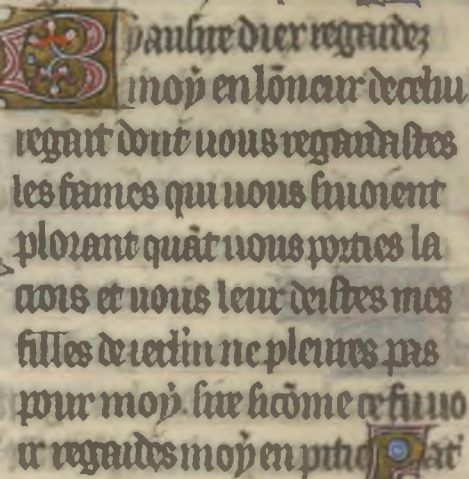 Biausire diex regardez
moy en lõneur de celui
regart dont uous regardastes
les fames qui uous siuoient
plorant quãt uous porties la
crois et uous leur deistes mes
filles de ierlm ne pleures pas
pour moy. sire si cõme ce fu uo
ir regardes moy en pitie Pat